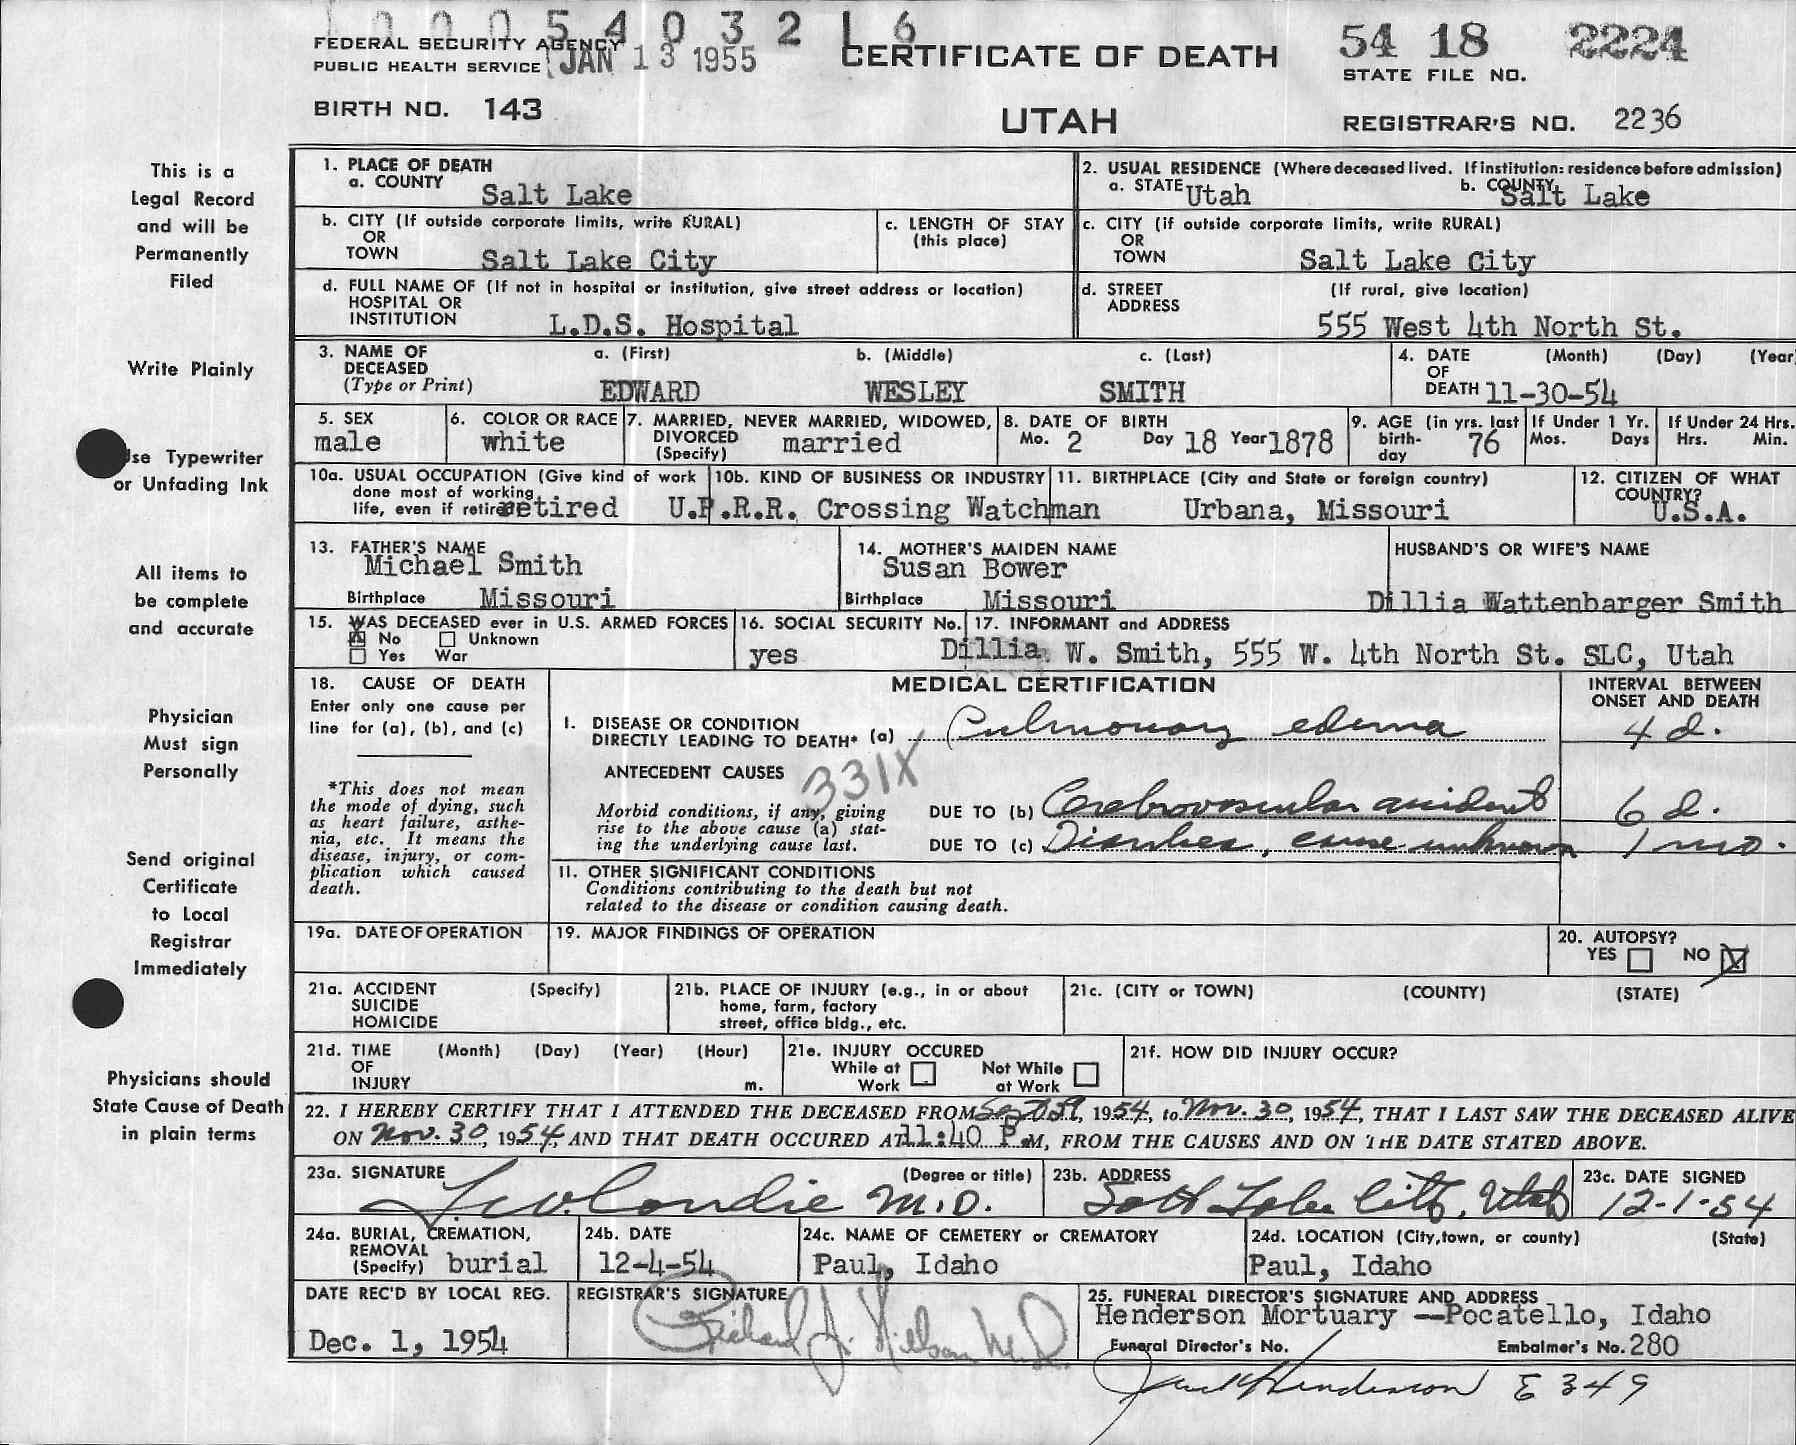 1 0 0 0 5 4 0 3 2 1 6
FEDERAL SECURITY AGENCY
PUBLIC HEALTH SERVICE JAN 13 1955
CERTIFICATE OF DEATH
54 18 2224
STATE FILE NO.
BIRTH NO. 143
UTAH
REGISTRAR'S NO. 2236
This is a
Legal Record
and will be
Permanently
Filed
Write Plainly
Use Typewriter
or Unfading Ink
All items to
be complete
and accurate
Physician
Must sign
Personally
Send original
Certificate
to Local
Registrar
Immediately
Physicians should
State Cause of Death
in plain terms
1. PLACE OF DEATH
a. COUNTY Salt Lake
2. USUAL RESIDENCE (Where deceased lived. If institution: residence before admission)
a. STATE Utah b. COUNTY Salt Lake
b. CITY (If outside corporate limits, write RURAL)
OR
TOWN Salt Lake City
c. LENGTH OF STAY
(this place)
c. CITY (if outside corporate limits, write RURAL)
OR
TOWN Salt Lake City
d. FULL NAME OF (If not in hospital or institution, give street address or location)
HOSPITAL OR
INSTITUTION L.D.S. Hospital
d. STREET (If rural, give location)
ADDRESS
555 West 4th North St.
3. NAME OF a. (First) b. (Middle) c. (Last)
DECEASED
(Type or Print) EDWARD WESLEY SMITH
4. DATE (Month) (Day) (Year
OF
DEATH 11-30-54
5. SEX
male
6. COLOR OR RACE
white
7. MARRIED, NEVER MARRIED, WIDOWED,
DIVORCED married
(Specify)
8. DATE OF BIRTH
Mo. 2 Day 18 Year 1878
9. AGE (in yrs. last
birth- 76
day
If Under 1 Yr.
Mos. Days
If Under 24 Hrs.
Hrs. Min.
10a. USUAL OCCUPATION (Give kind of work
done most of working
life, even if retired retired
10b. KIND OF BUSINESS OR INDUSTRY
U.P.R.R. Crossing Watchman
11. BIRTHPLACE (City and State or foreign country)
Urbana, Missouri
12. CITIZEN OF WHAT
COUNTRY?
U.S.A.
13. FATHER'S NAME
Michael Smith
Birthplace Missouri
14. MOTHER'S MAIDEN NAME
Susan Bower
Birthplace Missouri
HUSBAND'S OR WIFE'S NAME
Dillia Wattenbarger Smith
15. WAS DECEASED ever in U.S. ARMED FORCES
X No Unknown
Yes War
16. SOCIAL SECURITY No.
yes
17. INFORMANT and ADDRESS
Dillia W. Smith, 555 W. 4th North St. SLC, Utah
18. CAUSE OF DEATH
Enter only one cause per
line for (a), (b), and (c)
*This does not mean
the mode of dying, such
as heart failure, asthe-
nia, etc. It means the
disease, injury, or com-
plication which caused
death.
MEDICAL CERTIFICATION
INTERVAL BETWEEN
ONSET AND DEATH
I. DISEASE OR CONDITION
DIRECTLY LEADING TO DEATH* (a) Pulmonary edema 4 d.
ANTECEDENT CAUSES 331X
Morbid conditions, if any, giving
rise to the above cause (a) stat-
ing the underlying cause last.
DUE TO (b) Cerebrovascular accident 6 d.
DUE TO (c) Diarrhea, cause unknown 1 mo.
11. OTHER SIGNIFICANT CONDITIONS
Conditions contributing to the death but not
related to the disease or condition causing death.
19a. DATE OF OPERATION
19. MAJOR FINDINGS OF OPERATION
20. AUTOPSY?
YES NO X
21a. ACCIDENT (Specify)
SUICIDE
HOMICIDE
21b. PLACE OF INJURY (e.g., in or about
home, farm, factory
street, office bldg., etc.
21c. (CITY or TOWN) (COUNTY) (STATE)
21d. TIME (Month) (Day) (Year) (Hour)
OF
INJURY m.
21e. INJURY OCCURED
While at Work
Not While at Work
21f. HOW DID INJURY OCCUR?
22. I HEREBY CERTIFY THAT I ATTENDED THE DECEASED FROM 1954, to Nov. 30, 1954, THAT I LAST SAW THE DECEASED ALIVE
ON Nov. 30, 1954, AND THAT DEATH OCCURED AT 11:40 P.M, FROM THE CAUSES AND ON THE DATE STATED ABOVE.
23a. SIGNATURE (Degree or title)
M.D.
23b. ADDRESS
Salt Lake City, Utah
23c. DATE SIGNED
12-1-54
24a. BURIAL, CREMATION,
REMOVAL
(Specify) burial
24b. DATE
12-4-54
24c. NAME OF CEMETERY or CREMATORY
Paul, Idaho
24d. LOCATION (City, town, or county) (State)
Paul, Idaho
DATE REC'D BY LOCAL REG.
Dec. 1, 1954
REGISTRAR'S SIGNATURE
Richard J. Nelson M.D.
25. FUNERAL DIRECTOR'S SIGNATURE AND ADDRESS
Henderson Mortuary —Pocatello, Idaho
Funeral Director's No. Embalmer's No. 280
Jack Henderson E 349